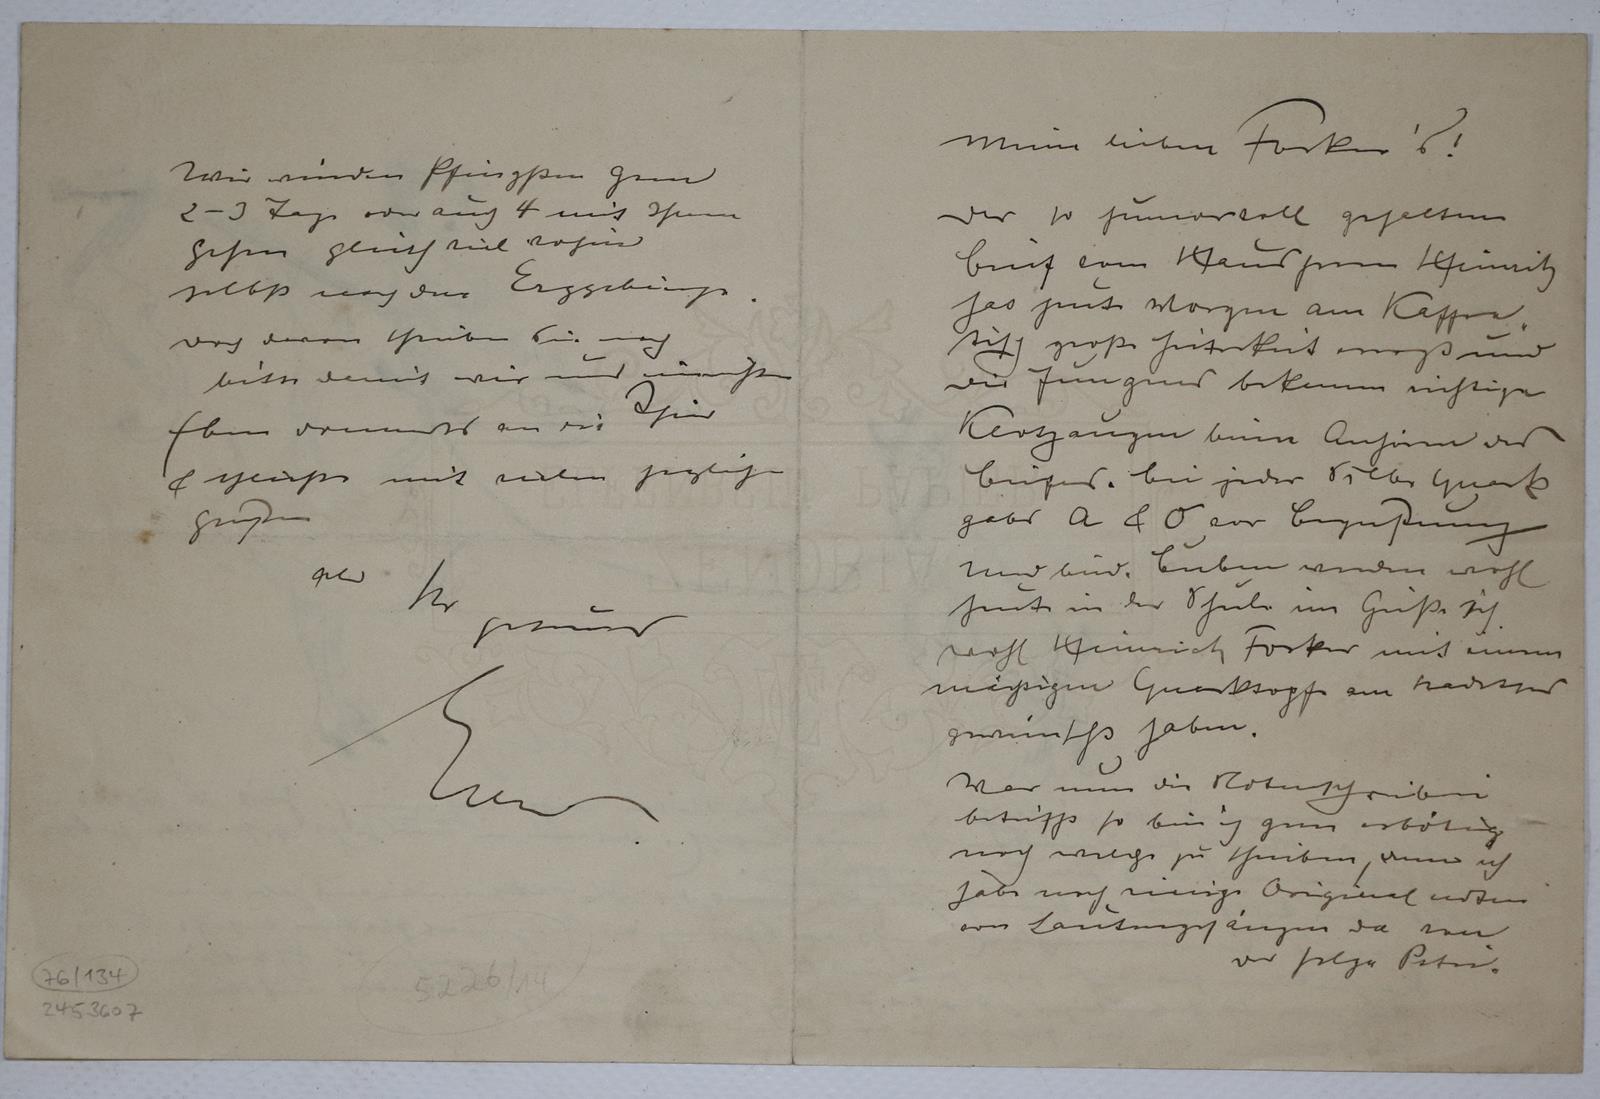 Meine lieben Forker's!
der so humorvoll gehaltene
Brief vom Hausherrn Heinrich
hat heute Morgen am Kaffee-
tisch große Heiterkeit erregt und
die Jungens bekamen richtige
Klotzaugen beim Anhören des
Briefes. bei jeder Silbe Quark
gabs A & O zur Begrüßung
und Buben werden wohl
heute in der Schule im Geiste sich
wohl Heinrich Forker mit einem
mächtigen Quarktopfe am
gewünscht haben.
Was nun die Notenschreiberei
betrifft so bin ich gern erbötig
noch welche zu schreiben, denn ich
habe noch einige Original noten
von Lautengesängen da von
der Helga Petri.
Wir würden Pfingsten gern
2-3 Tage oder auch 4 mit Ihnen
gehen gleich viel wohin
selbst nach dem Erzgebirge.
doch davon schreiben Sie noch
bitte damit wir uns
Eben an die
& schließe mit vielen herzlichen
Grüßen
Ihr
getreuer
76/134
2453607
5226/14